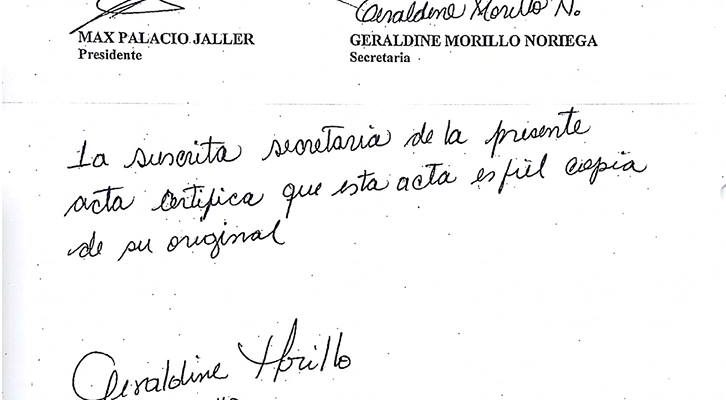 Geraldine Morillo N.
MAX PALACIO JALLER
GERALDINE MORILLO NORIEGA
Presidente
Secretaria
La suscrita secretaria de la presente
acta certifica que esta acta es fiel copia
de su original
Geraldine Morillo